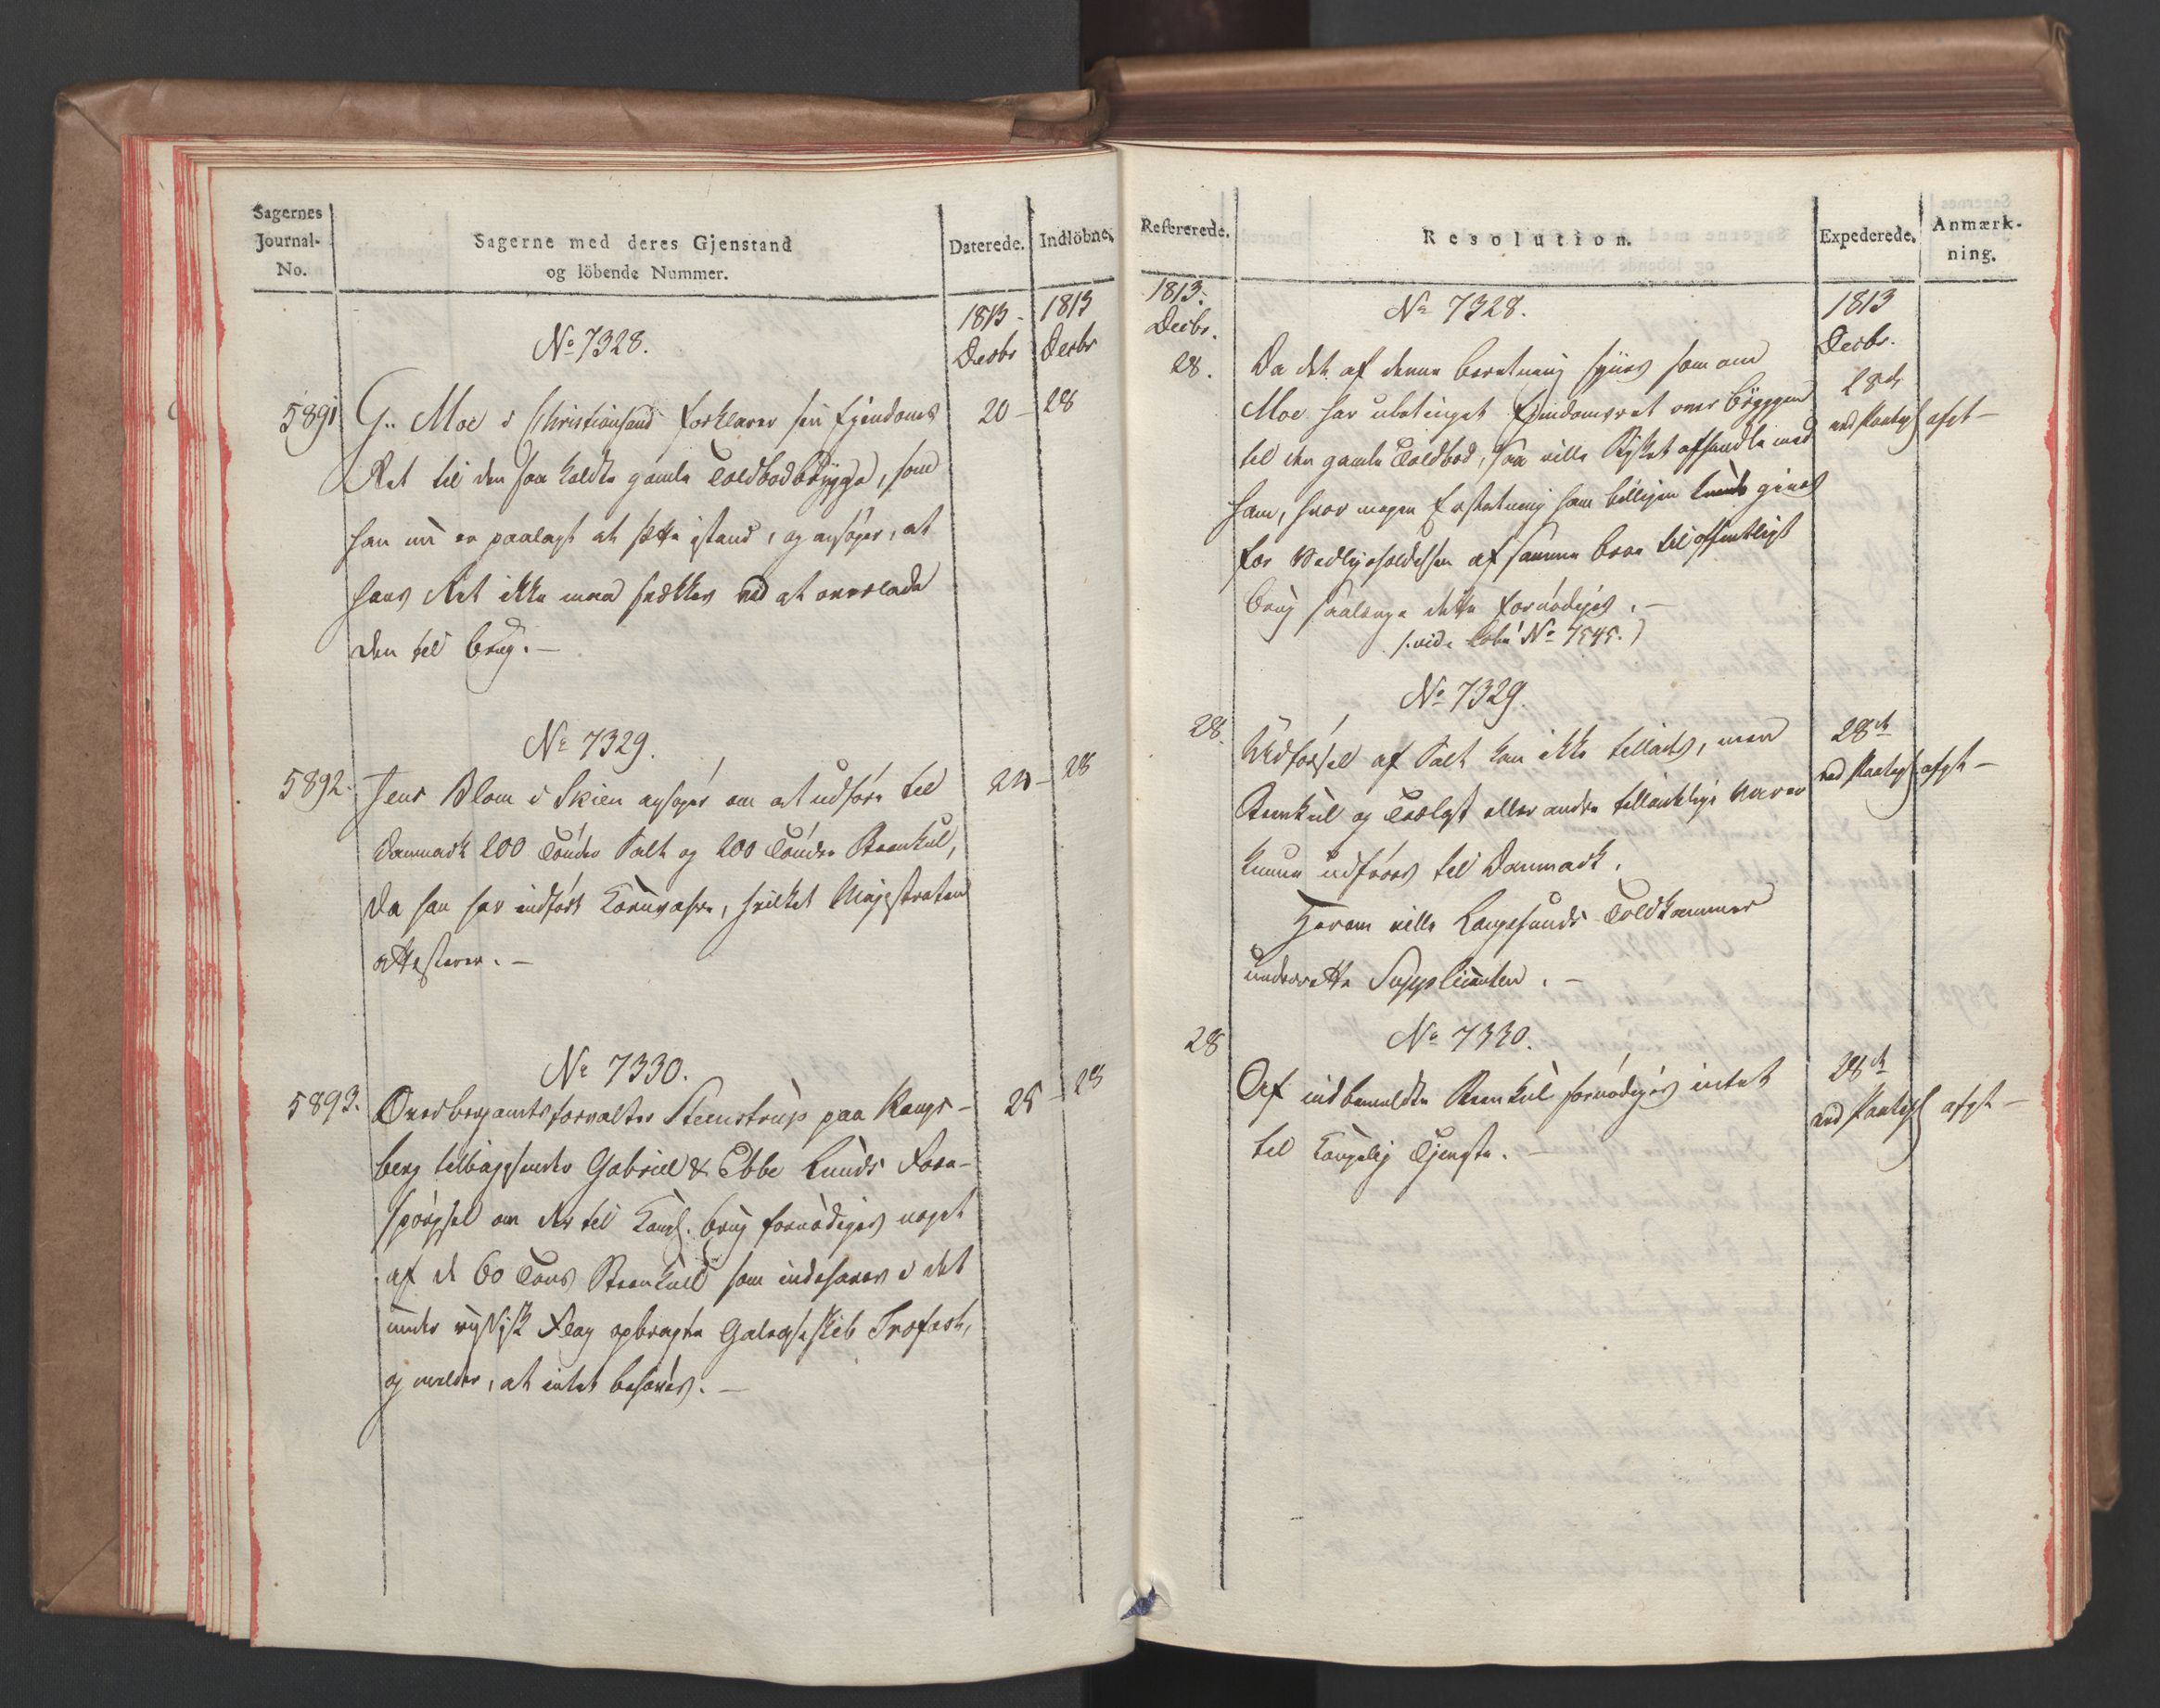 Sagernes
Journal-
No.
Sagerne med deres Gjenstand
og löbende Nummer.
Daterede.
Indlöbne.
1813. Decbr
1813 Decbr
No 7328.
5891 G. Moe i Christiansand forklarer sin Ejendoms 20 - 28
Ret til den saa kaldte gamle Toldbodbrygge, som
han nu er paalagt at sette istand, og ansøger, at
hans Ret ikke maa svækkes ved at overlade
den til Brug. -
No 7329.
5892. Jens Blom i Skien ansøger om at udføre til 24 - 28
Danmark 200 Tønder Salt og 200 Tønder Steenkul,
da han har indført Kornvahre, hvilket Magistraten
attesterer. -
No 7330.
5893. Overbergamtsforvalter Steenstrup paa Kongs- 25 - 28
berg tilbagesender Gabriel & Ebbe Lunds Fore-
spørgsel om der til Kongl. brug fornødiges noget
af de 60 Tons Steenkull som indehaves i det
under russisk Flag opbragte Galeaseskib Trofast,
og melder, at intet behøves. -
Refererede.
Resolution.
Expederede.
Anmærk-
ning.
1813. Decbr.
1813 Decbr.
No 7328.
28. Da det af denne beretning synes som om 28de
Moe har ubetinget Ejendomsret over bryggen afgt -
til den gamle Toldbod, saa ville Tyket afhandle med
ham, hvor megen Erstatning ham billigen kunde gives
for Vedligeholdelsen af samme broe til offentligt
brug saalænge dette fornødiges. -
(vide No 7545.)
No 7329.
28. Udførsel af Salt kan ikke tillades, men 28de
Steenkul og eller andre tilladelige Varer afgt -
kunne udføres til Danmark.
Herom ville Langesunds Toldkammer
underrette Supplicanten. -
No 7330.
28 Af indbemeldte Steenkul fornødiges intet 28de
til Kongelig Tjeneste. - afgt -